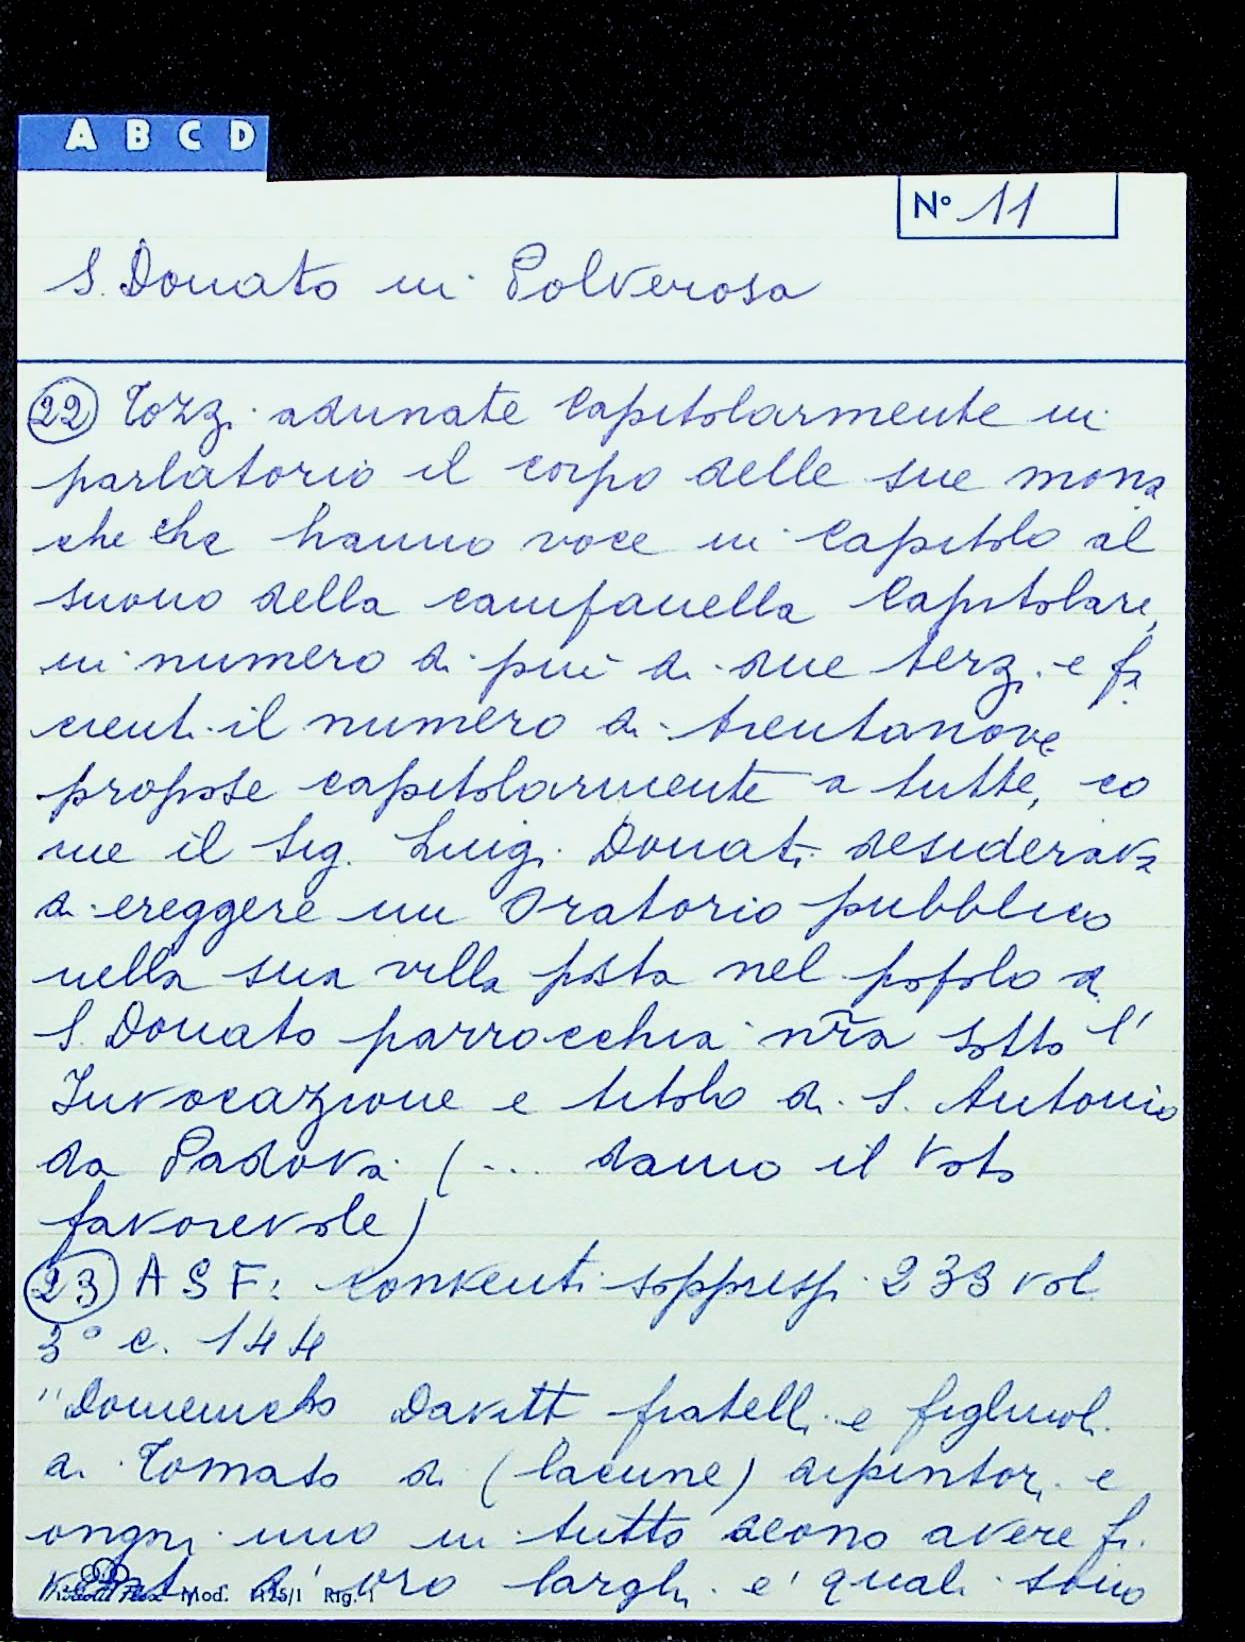 A B C D
N° 11
S. Donato in Polverosa
22 Tozzi adunate Capitolarmente in
parlatorio il corpo delle sue mona
che che hanno voce in Capitolo al
suono della campanella Capitolare,
in numero di più di due terzi e fa
cienti il numero di trentanove
propose capitolarmente a tutte, co
me il Sig. Luigi Donati desiderava
di ereggere un Oratorio pubblico
nella sua villa posta nel popolo di
S. Donato parrocchia nr̃a sotto l'
Invocazione e titolo di S. Antonio
da Padova (... danno il voto
favorevole)
23 A S F: conventi soppressi 233 vol
3° c. 144
"Domenicho Davitt fratelli e figliuoli
di Tomaso di (lacune) dipintori e
ongni uno in tutto deono avere fi.
d' oro larghi e' quali sono
Mod. Rig. 1